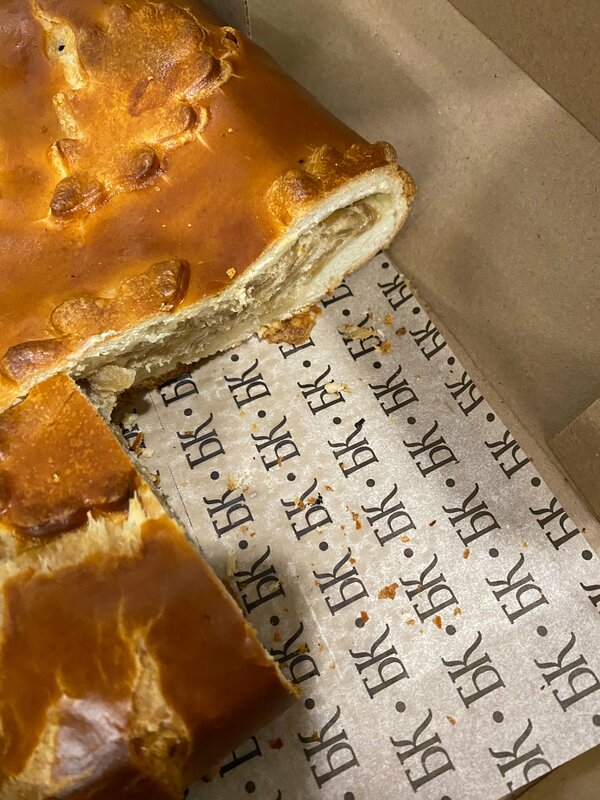 БК
БК • БК • БК • БК
БК • БК • БК • БК • БК
БК • БК • БК • БК • БК
БК • БК • БК • БК • БК
БК • БК • БК • БК • БК
БК • БК • БК • БК
БК • БК